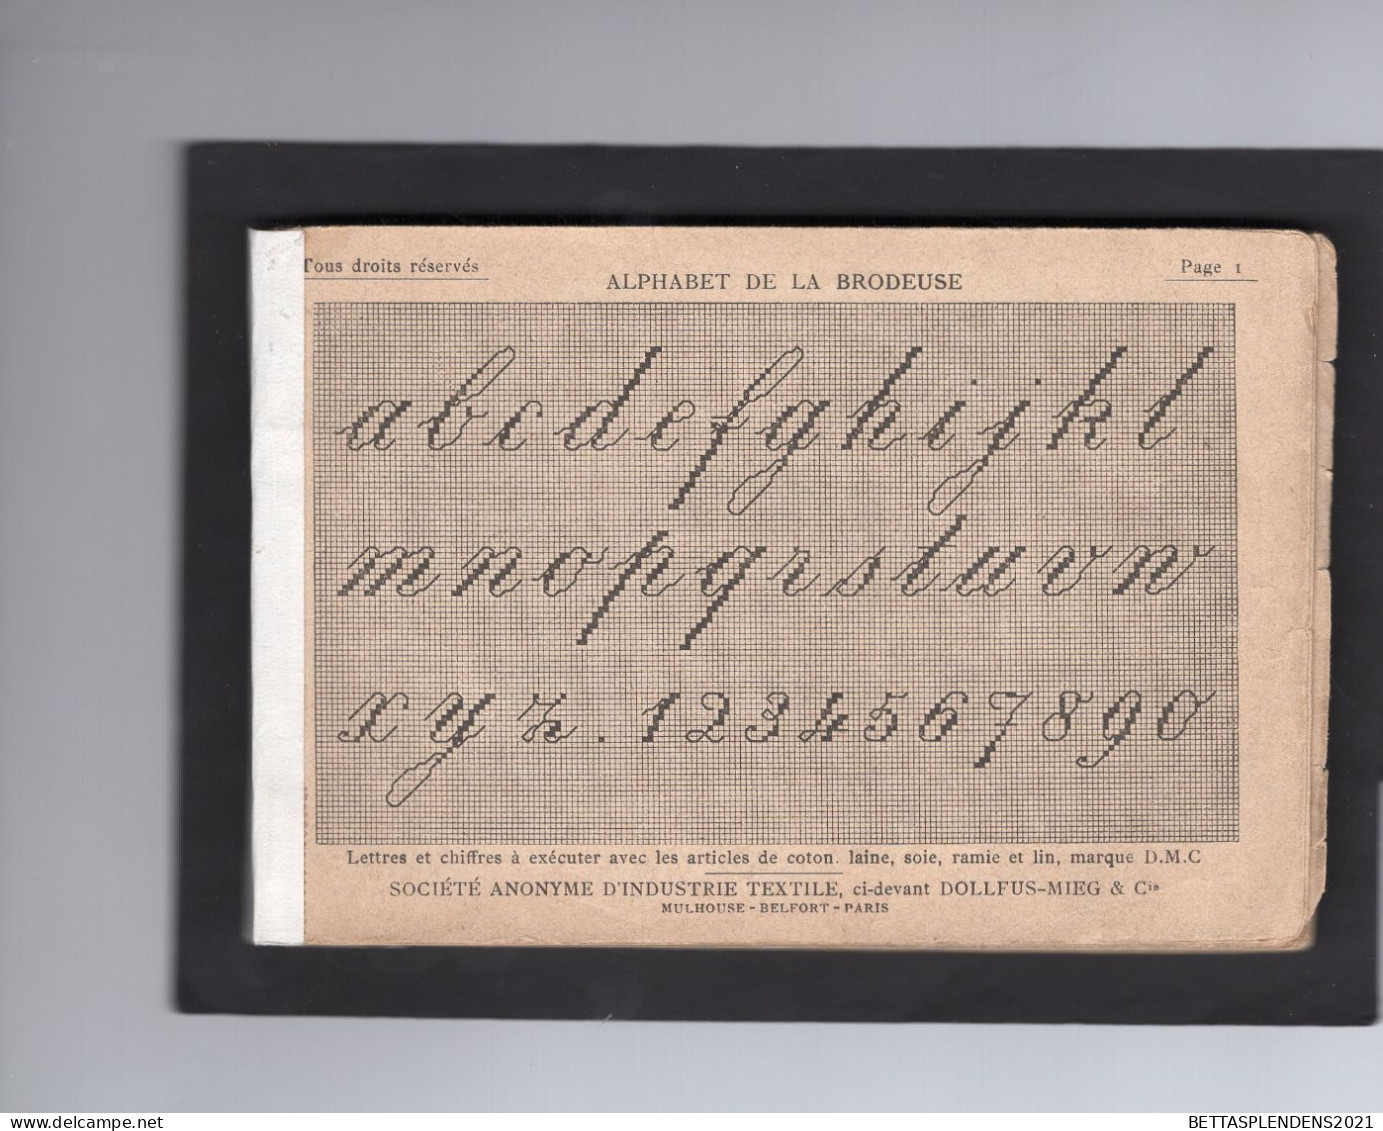 Tous droits réservés
ALPHABET DE LA BRODEUSE
Page 1
a b c d e f g h i j k l
m n o p q r s t u v w
x y z . 1 2 3 4 5 6 7 8 9 0
Lettres et chiffres à exécuter avec les articles de coton. laine, soie, ramie et lin, marque D.M.C
SOCIÉTÉ ANONYME D'INDUSTRIE TEXTILE, ci-devant DOLLFUS-MIEG & Cie
MULHOUSE - BELFORT - PARIS
BETTASPLENDENS2021